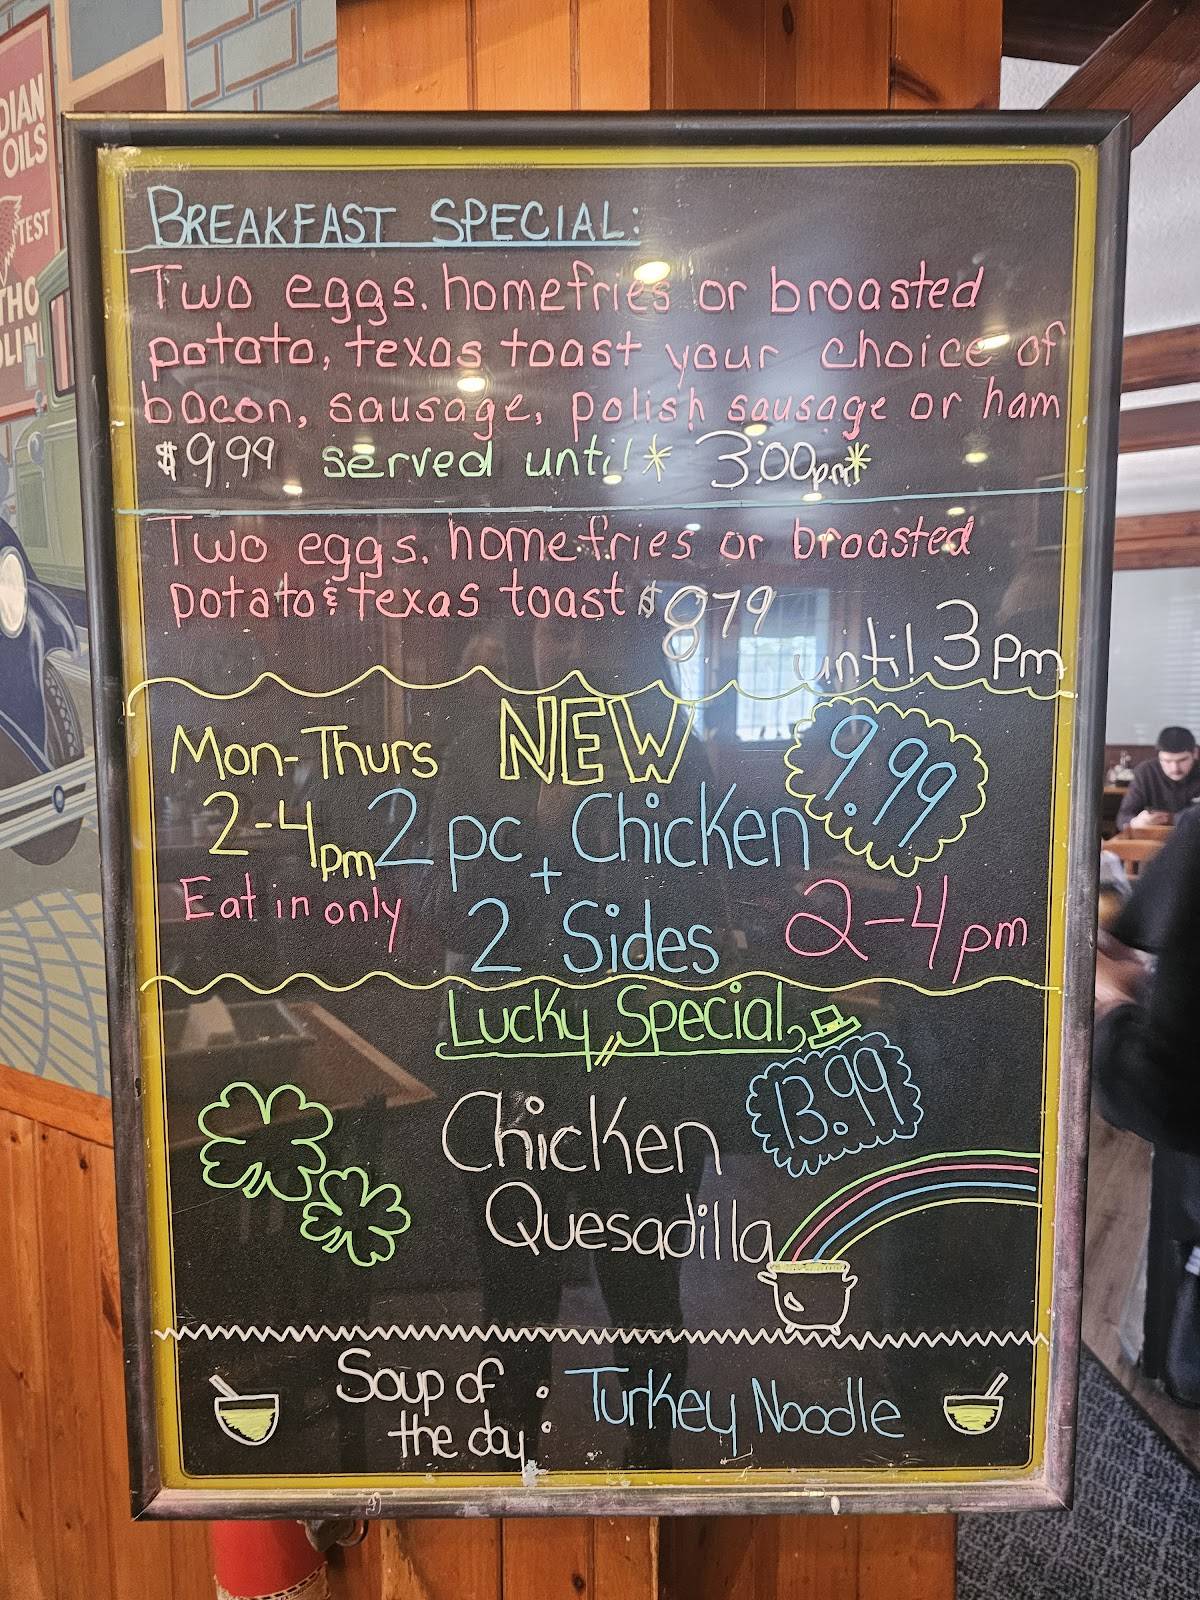 DIAN
OILS
TEST
THO
OLIN
BREAKFAST SPECIAL:
Two eggs. homefries or broasted
potato, texas toast your choice of
bacon, sausage, polish sausage or ham
$9.99 served until * 3:00pm*
Two eggs. homefries or broasted
potato & texas toast $8.79
until 3pm
Mon-Thurs NEW 9.99
2-4pm 2 pc Chicken
Eat in only + 2 Sides 2-4pm
Lucky Special
Chicken 13.99
Quesadilla
Soup of : Turkey Noodle
the day :